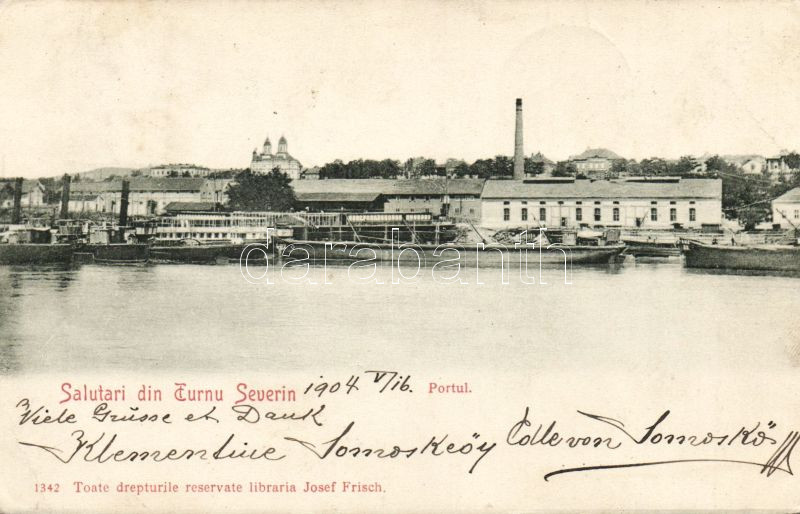 darabanth
Salutari din Turnu Severin 1904 V/16. Portul.
Viele Grüsse et Dank
Klementine Somoskeöy Edle von Somoskö
1342 Toate drepturile reservate libraria Josef Frisch.